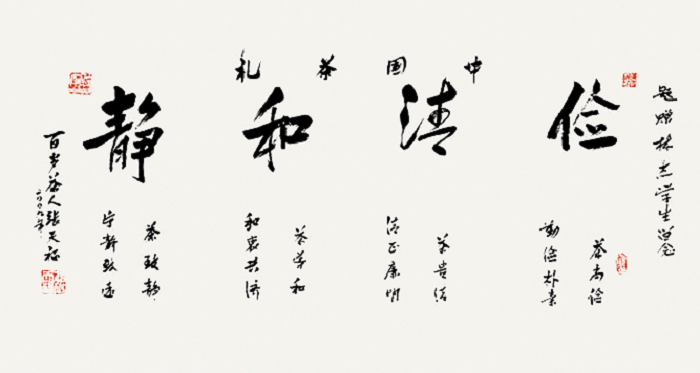 题赠志学生留念
中国茶礼
俭
茶尚俭
勤俭朴素
清
茶贵清
清正廉明
和
茶导和
和衷共济
静
茶致静
宁静致远
百岁茶人张天福
二〇〇九年